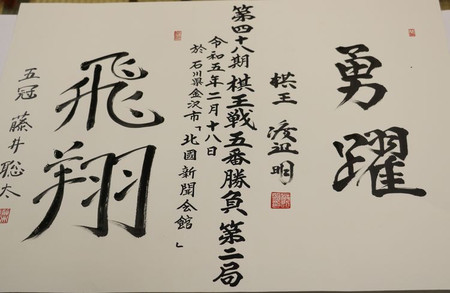 勇躍
棋王 渡辺 明
第四十八期 棋王戦五番勝負 第二局
令和五年二月十八日
於 石川県金沢市「北國新聞会館」
飛翔
五冠 藤井聡太